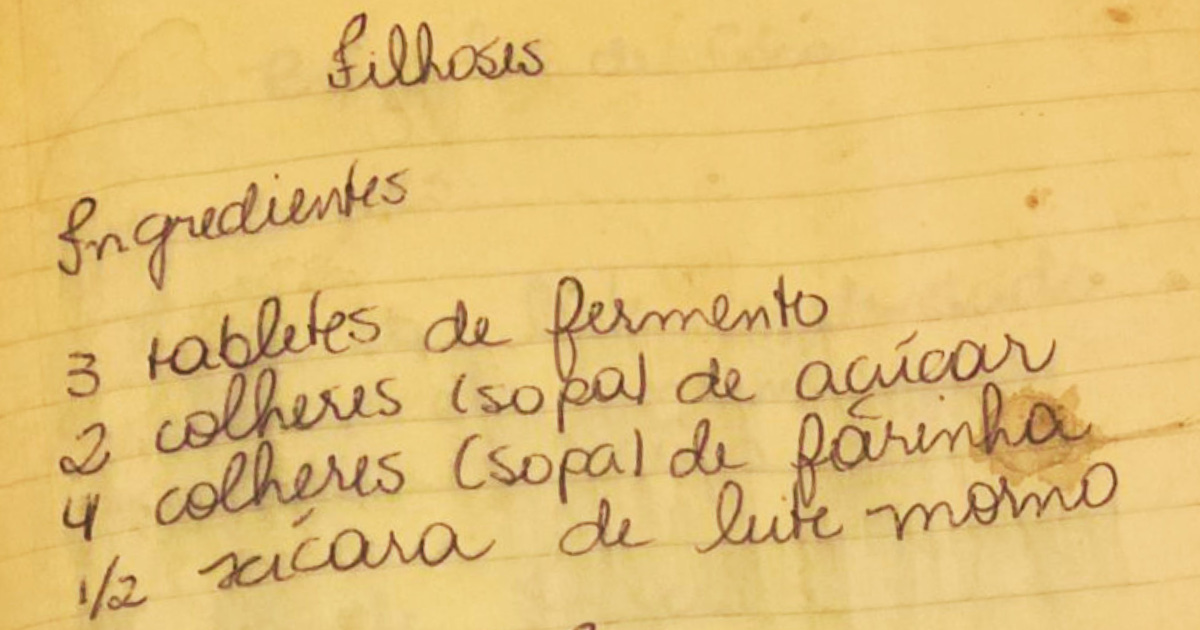 Filhoses
Ingredientes
3 tabletes de fermento
2 colheres (sopa) de açúcar
4 colheres (sopa) de farinha
1/2 xícara de leite morno